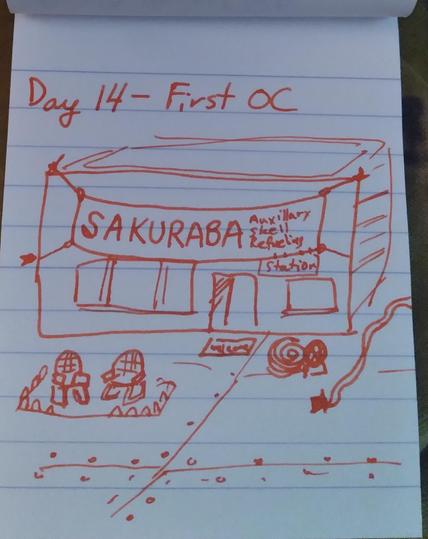 Day 14 - First OC
SAKURABA
Auxillary
Shell
Refueling
Station
Welcome